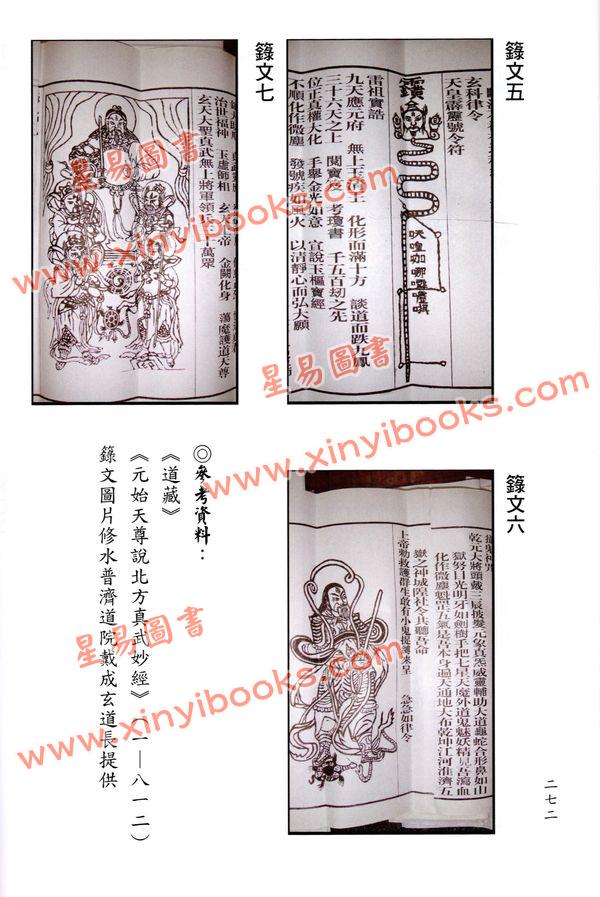 籙文五
玄科律令
天皇霹靂號令符
雷祖寶誥
九天應元府 無上玉清王 化形而滿十方 談道而趺九鳳
三十六天之上 閱寶笈 考瓊書 千五百劫之先
位正真權大化 手舉金光如意 宣說玉樞寶經
不順化作微塵 發號疾如風火 以清靜心而弘大願
籙文七
治世福神 玉虛師相 玄 帝 金闕化身 蕩魔護道天尊
玄天大聖真武無上將軍領兵 十萬眾
籙文六
乾元大將頭戴三辰披髮元象真炁威靈輔助大道龜蛇合形鼻如山
嶽努目光明牙如劍樹手把七星天魔外道鬼魅妖精見吾瀉血
化作微塵魁罡五氣是吾本身遍天通地大布乾坤江河淮濟五
嶽之神城隍社令共聽吾命
上帝勅救護群生敢有小鬼捉縛來呈 急急如律令
◎參考資料：
《道藏》
《元始天尊說北方真武妙經》（一一—八一二）
籙文圖片修水普濟道院戴成玄道長提供
二七二
星易圖書
www.xinyibooks.com
星易圖書
www.xinyibooks.com
星易圖書
www.xinyibooks.com
星易圖書
www.xinyibooks.com